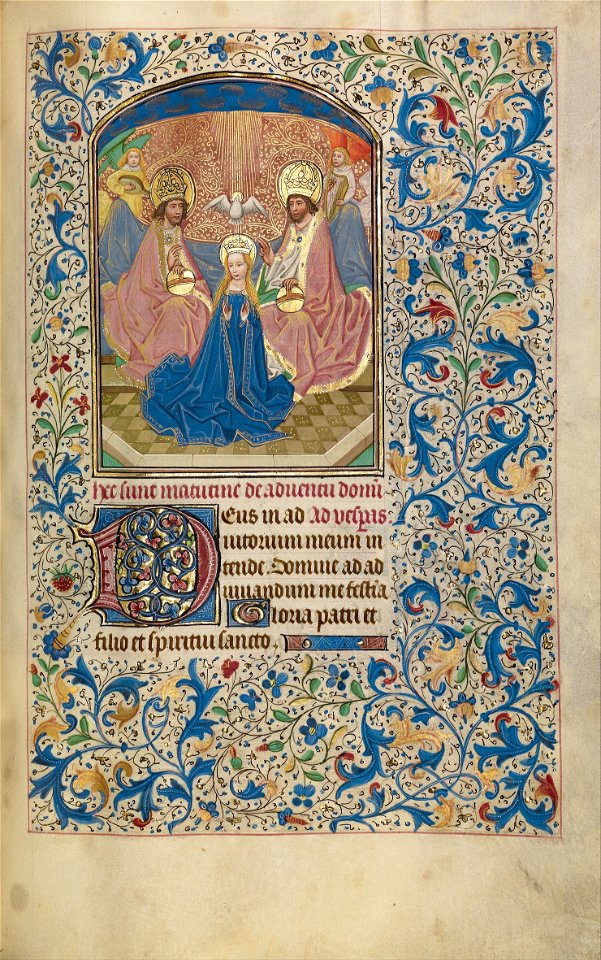 hec sunt matutine de aduentu domi
Deus in ad Ad vesperas:
iutorium meum in
tende. Domine ad ad
iuuandum me festia
Gloria patri et
filio et spiritui sancto.